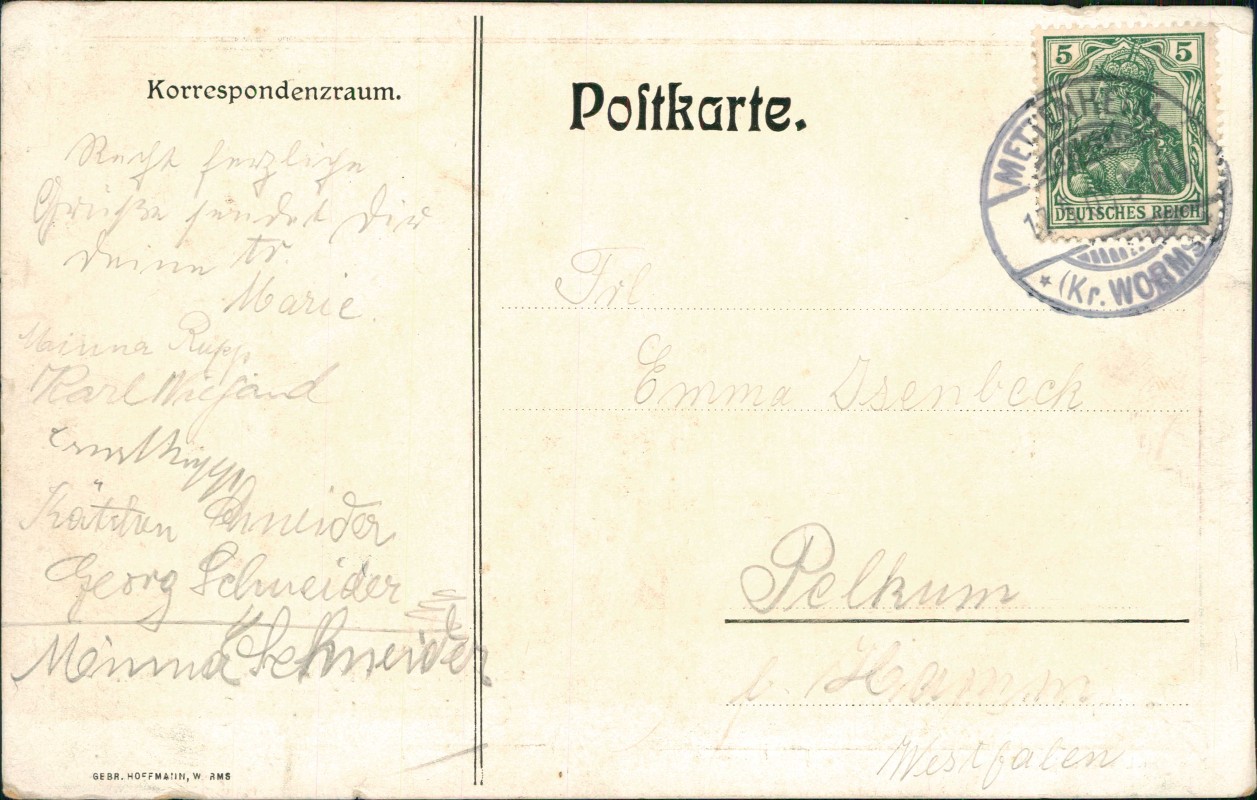 Korrespondenzraum.
Recht herzliche
Grüße sendet dir
deine tr.
Marie.
Minna Rupp
Karl Wiegand
Ernst Rupp
Kätchen Schneider
Georg Schneider
Minna Schneider
GEBR. HOFFMANN, W RMS
Poſtkarte.
5 5
DEUTSCHES REICH
METTENHEIM
* (Kr. WORMS)
Frl
Emma Isenbeck
Pelkum
b. Hamm
Westfalen